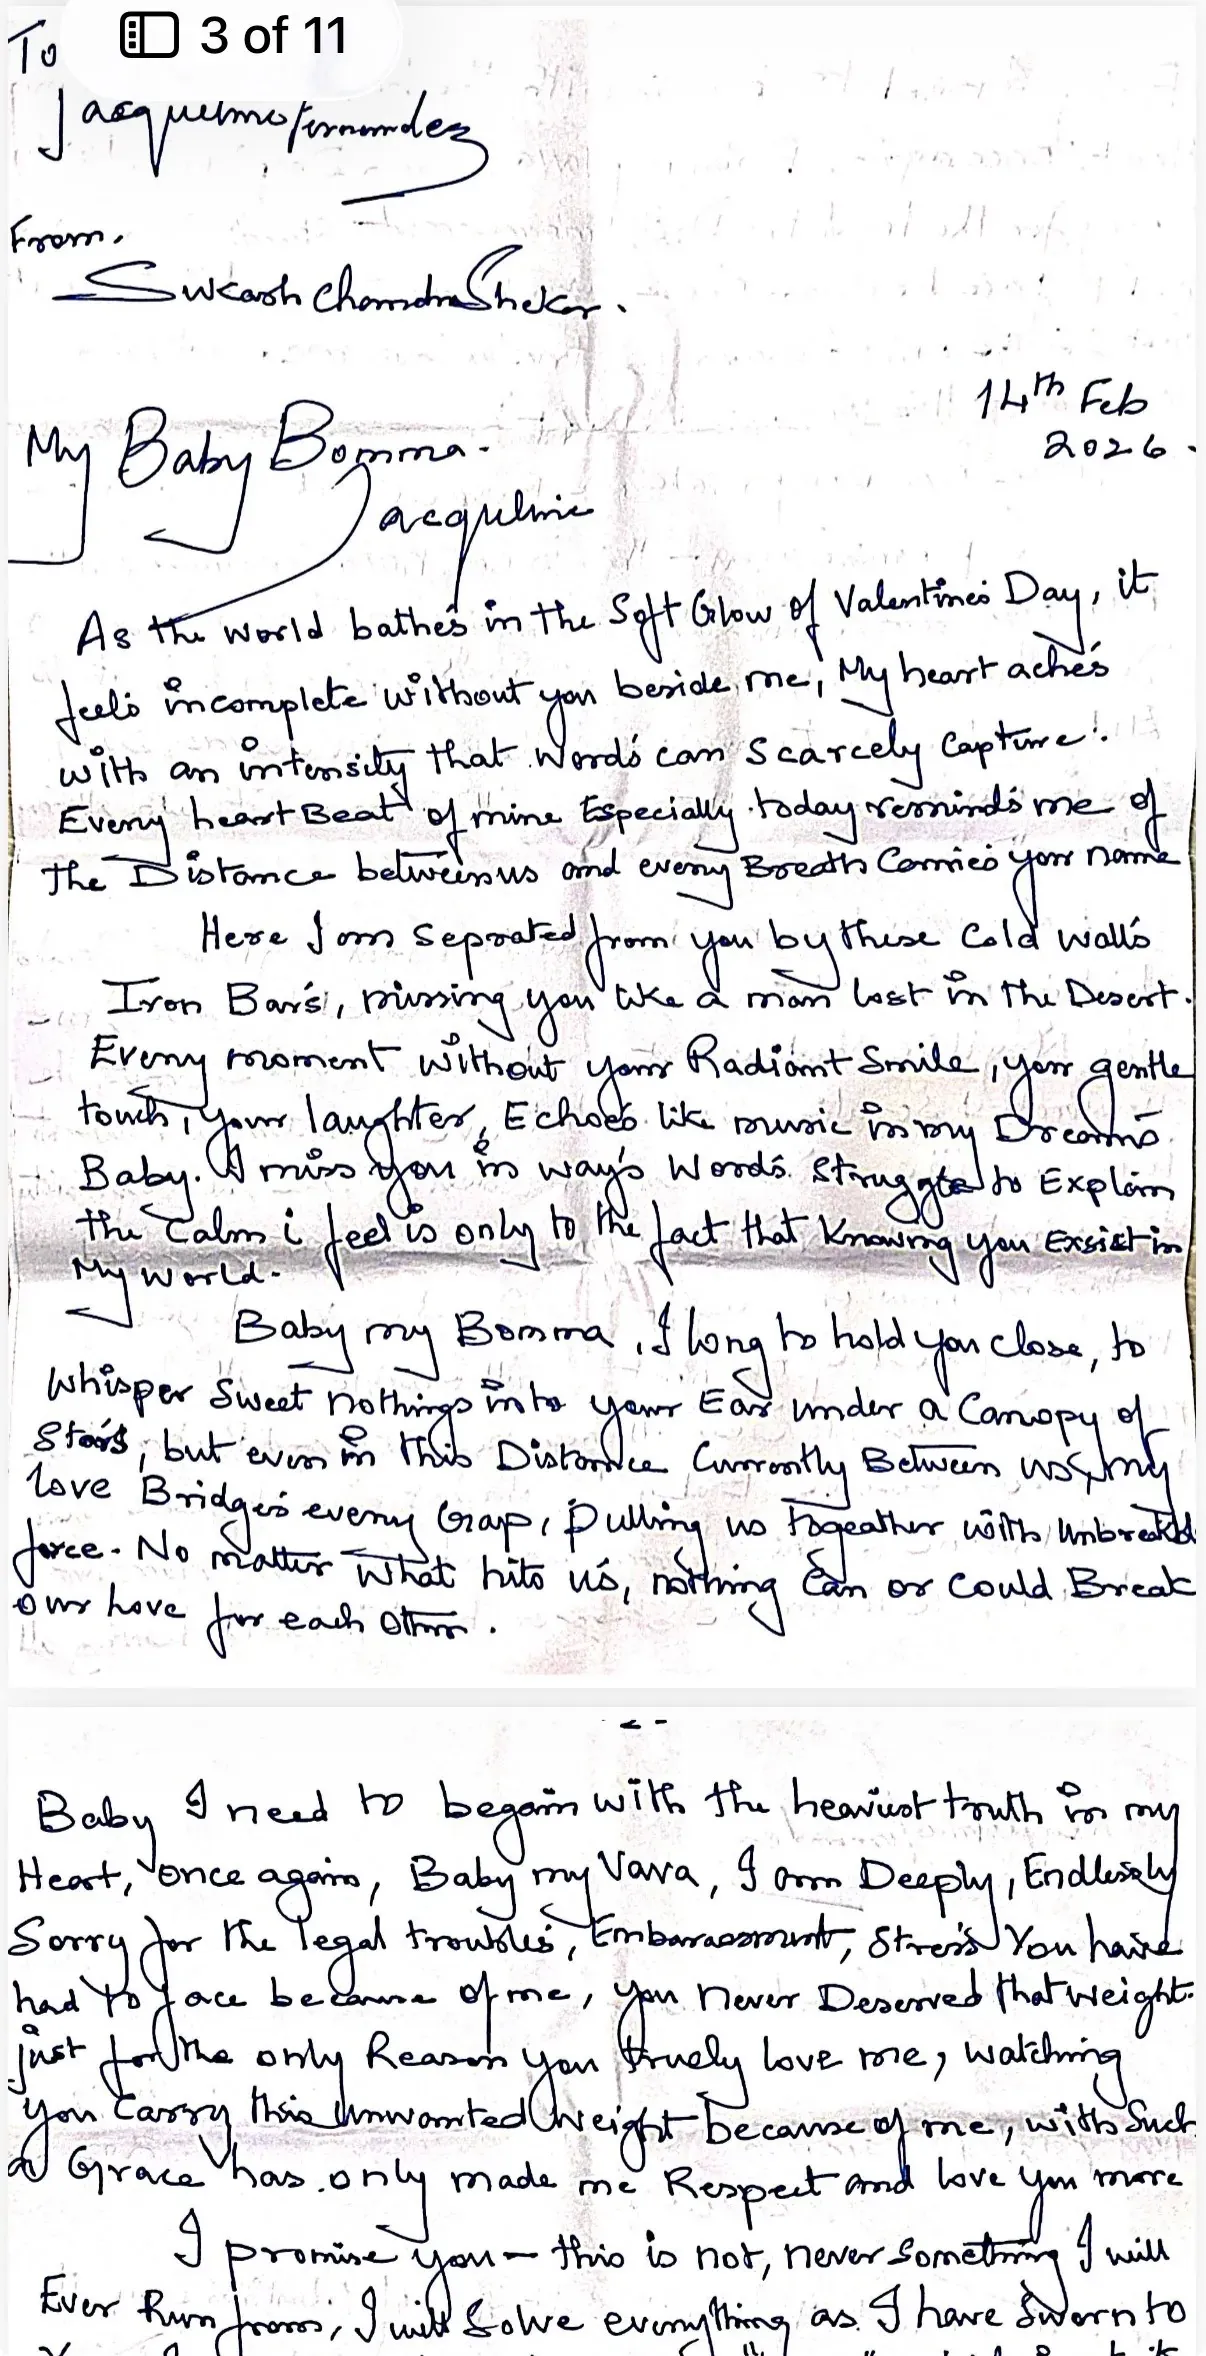 3 of 11
To
Jacqueline Fernandez
From,
Sukash ChandraShekar.
14th Feb
2026.
My Baby Bomma.
Jacqueline
As the World bathes in the Soft Glow of Valentines Day, it
feels incomplete without you beside me, My heart aches
with an intensity that words can Scarcely Capture.
Every heart Beat of mine Especially today reminds me of
the Distance between us and every Breath Carries your name
Here I am Seprated from you by these Cold walls
Iron Bars, missing you like a man lost in the Desert.
Every moment without your Radiant Smile, your gentle
touch, your laughter, Echoes like music in my Dreams
Baby. I miss you in ways Words Struggle to Explain
the Calm i feel is only to the fact that Knowing you Exsist in
My World.
Baby my Bomma, I long to hold you close, to
Whisper Sweet nothings into your Ear under a Canopy of
Stars, but even in this Distance Currently Between us, my
love Bridges every Gap, pulling us togeather with
force. No matter what hits us, nothing Can or Could Break
our love for each other.
2 -
Baby I need to begain with the heaviest truth in my
Heart, once again, Baby my Vava, I am Deeply, Endlessly
Sorry for the legal troubles, Embarassment, Stress You have
had to face because of me, you never Deserved that weight.
just for the only Reason you truely love me, watching
you Carry this Unwanted Weight because of me, with Such
a Grace has only made me Respect and love you more
I promise you - this is not, never Something I will
Ever Run from, I will Solve everything as I have Sworn to